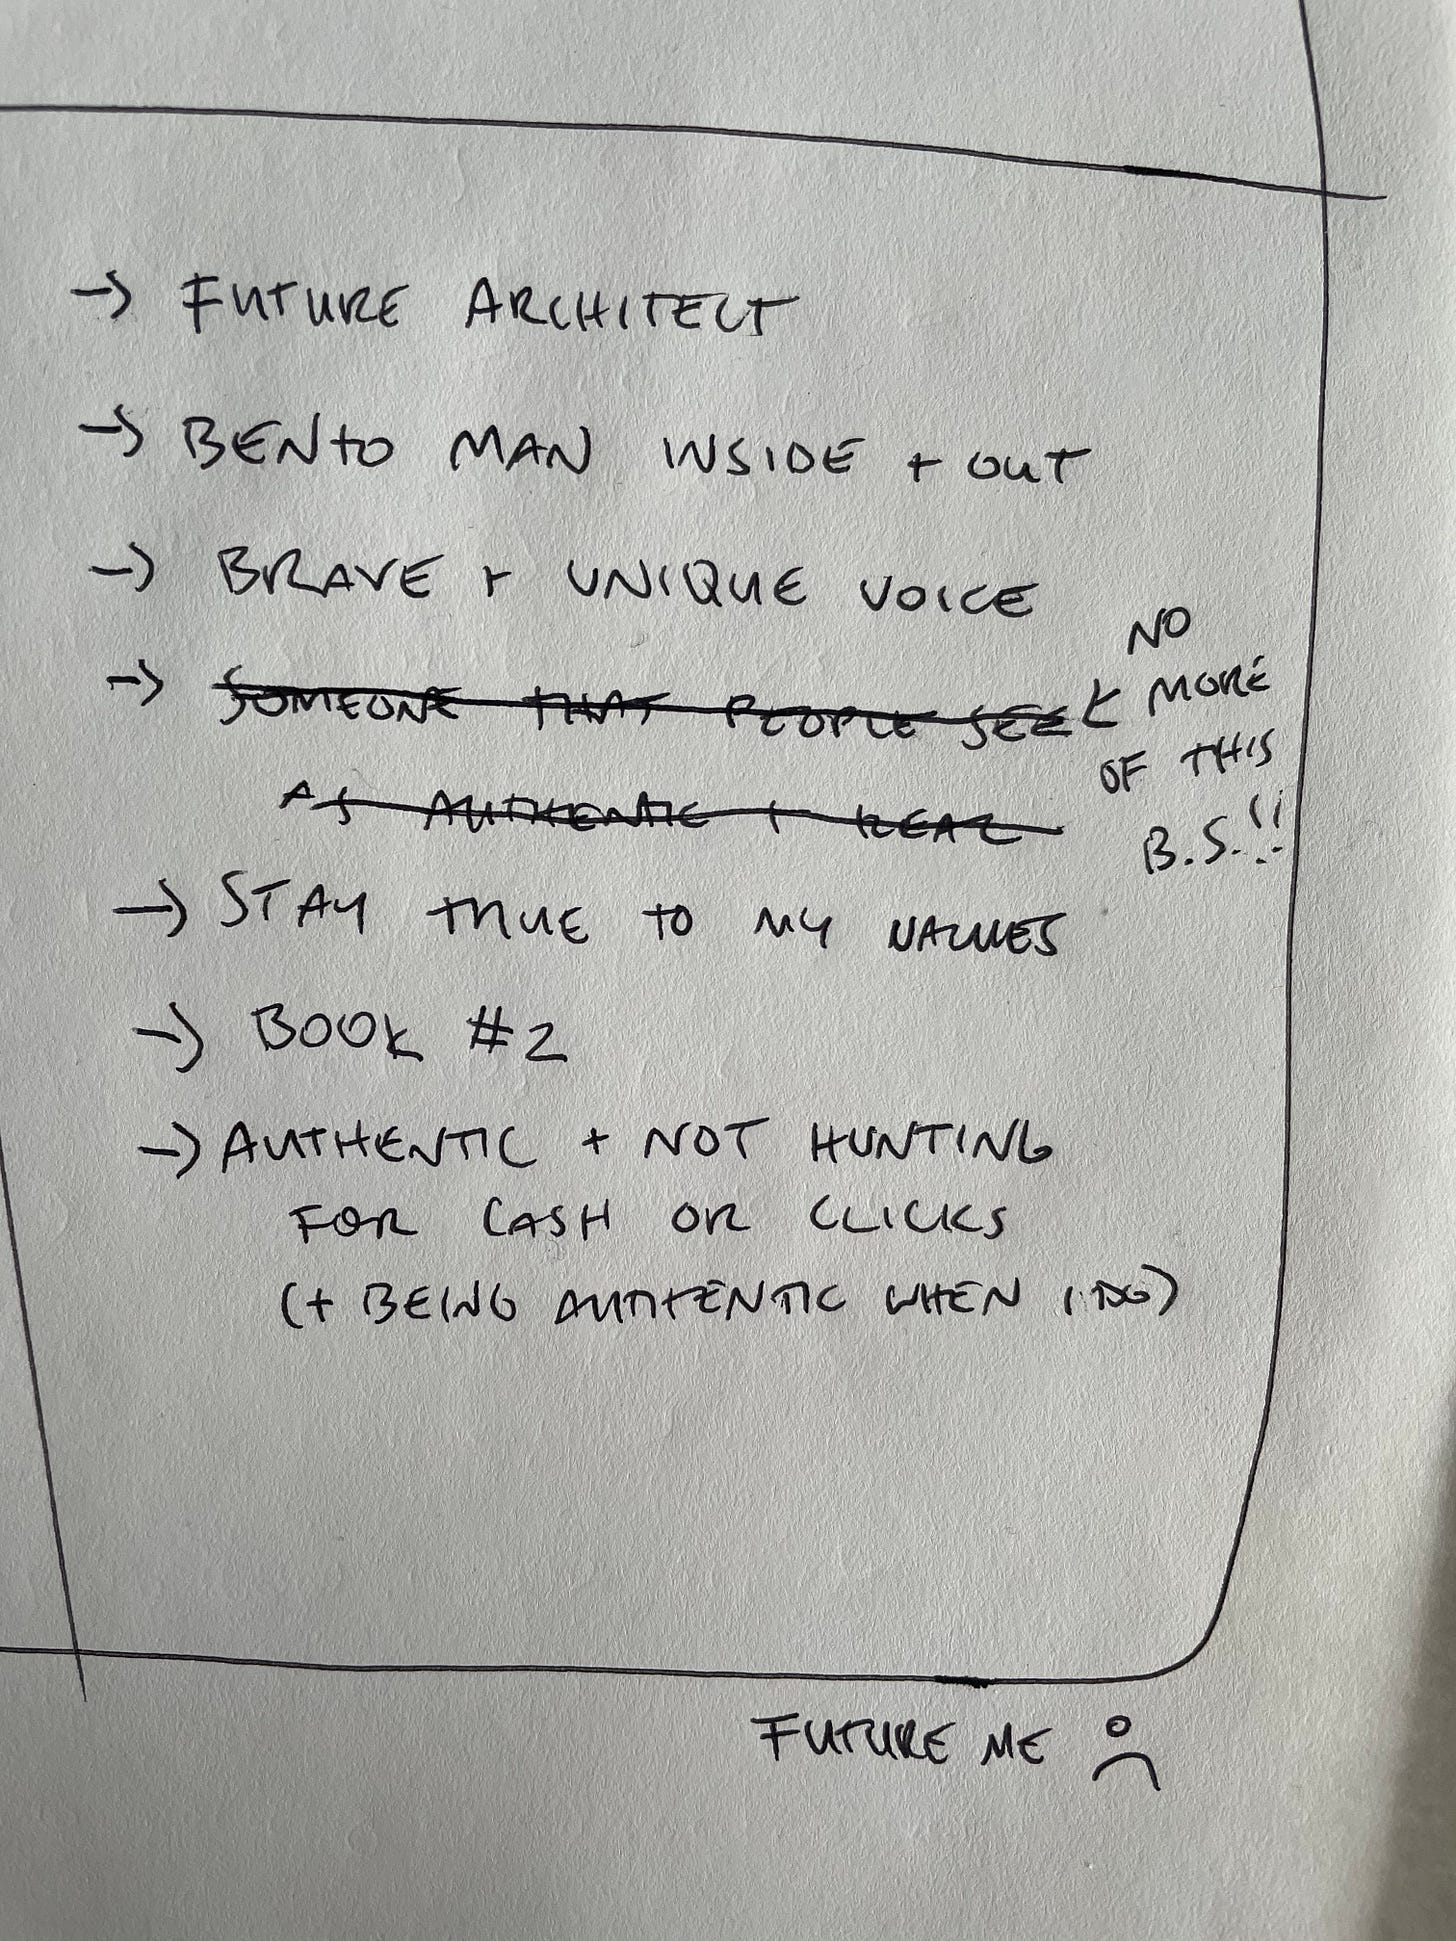 → FUTURE ARCHITECT
→ BENTO MAN INSIDE + OUT
→ BRAVE + UNIQUE VOICE
→ SOMEONE THAT PEOPLE SEE
AS AUTHENTIC + REAL
← NO
MORE
OF THIS
B.S.!!
→ STAY TRUE TO MY VALUES
→ BOOK #2
→ AUTHENTIC + NOT HUNTING
FOR CASH OR CLICKS
(+ BEING AUTHENTIC WHEN I DO)
FUTURE ME